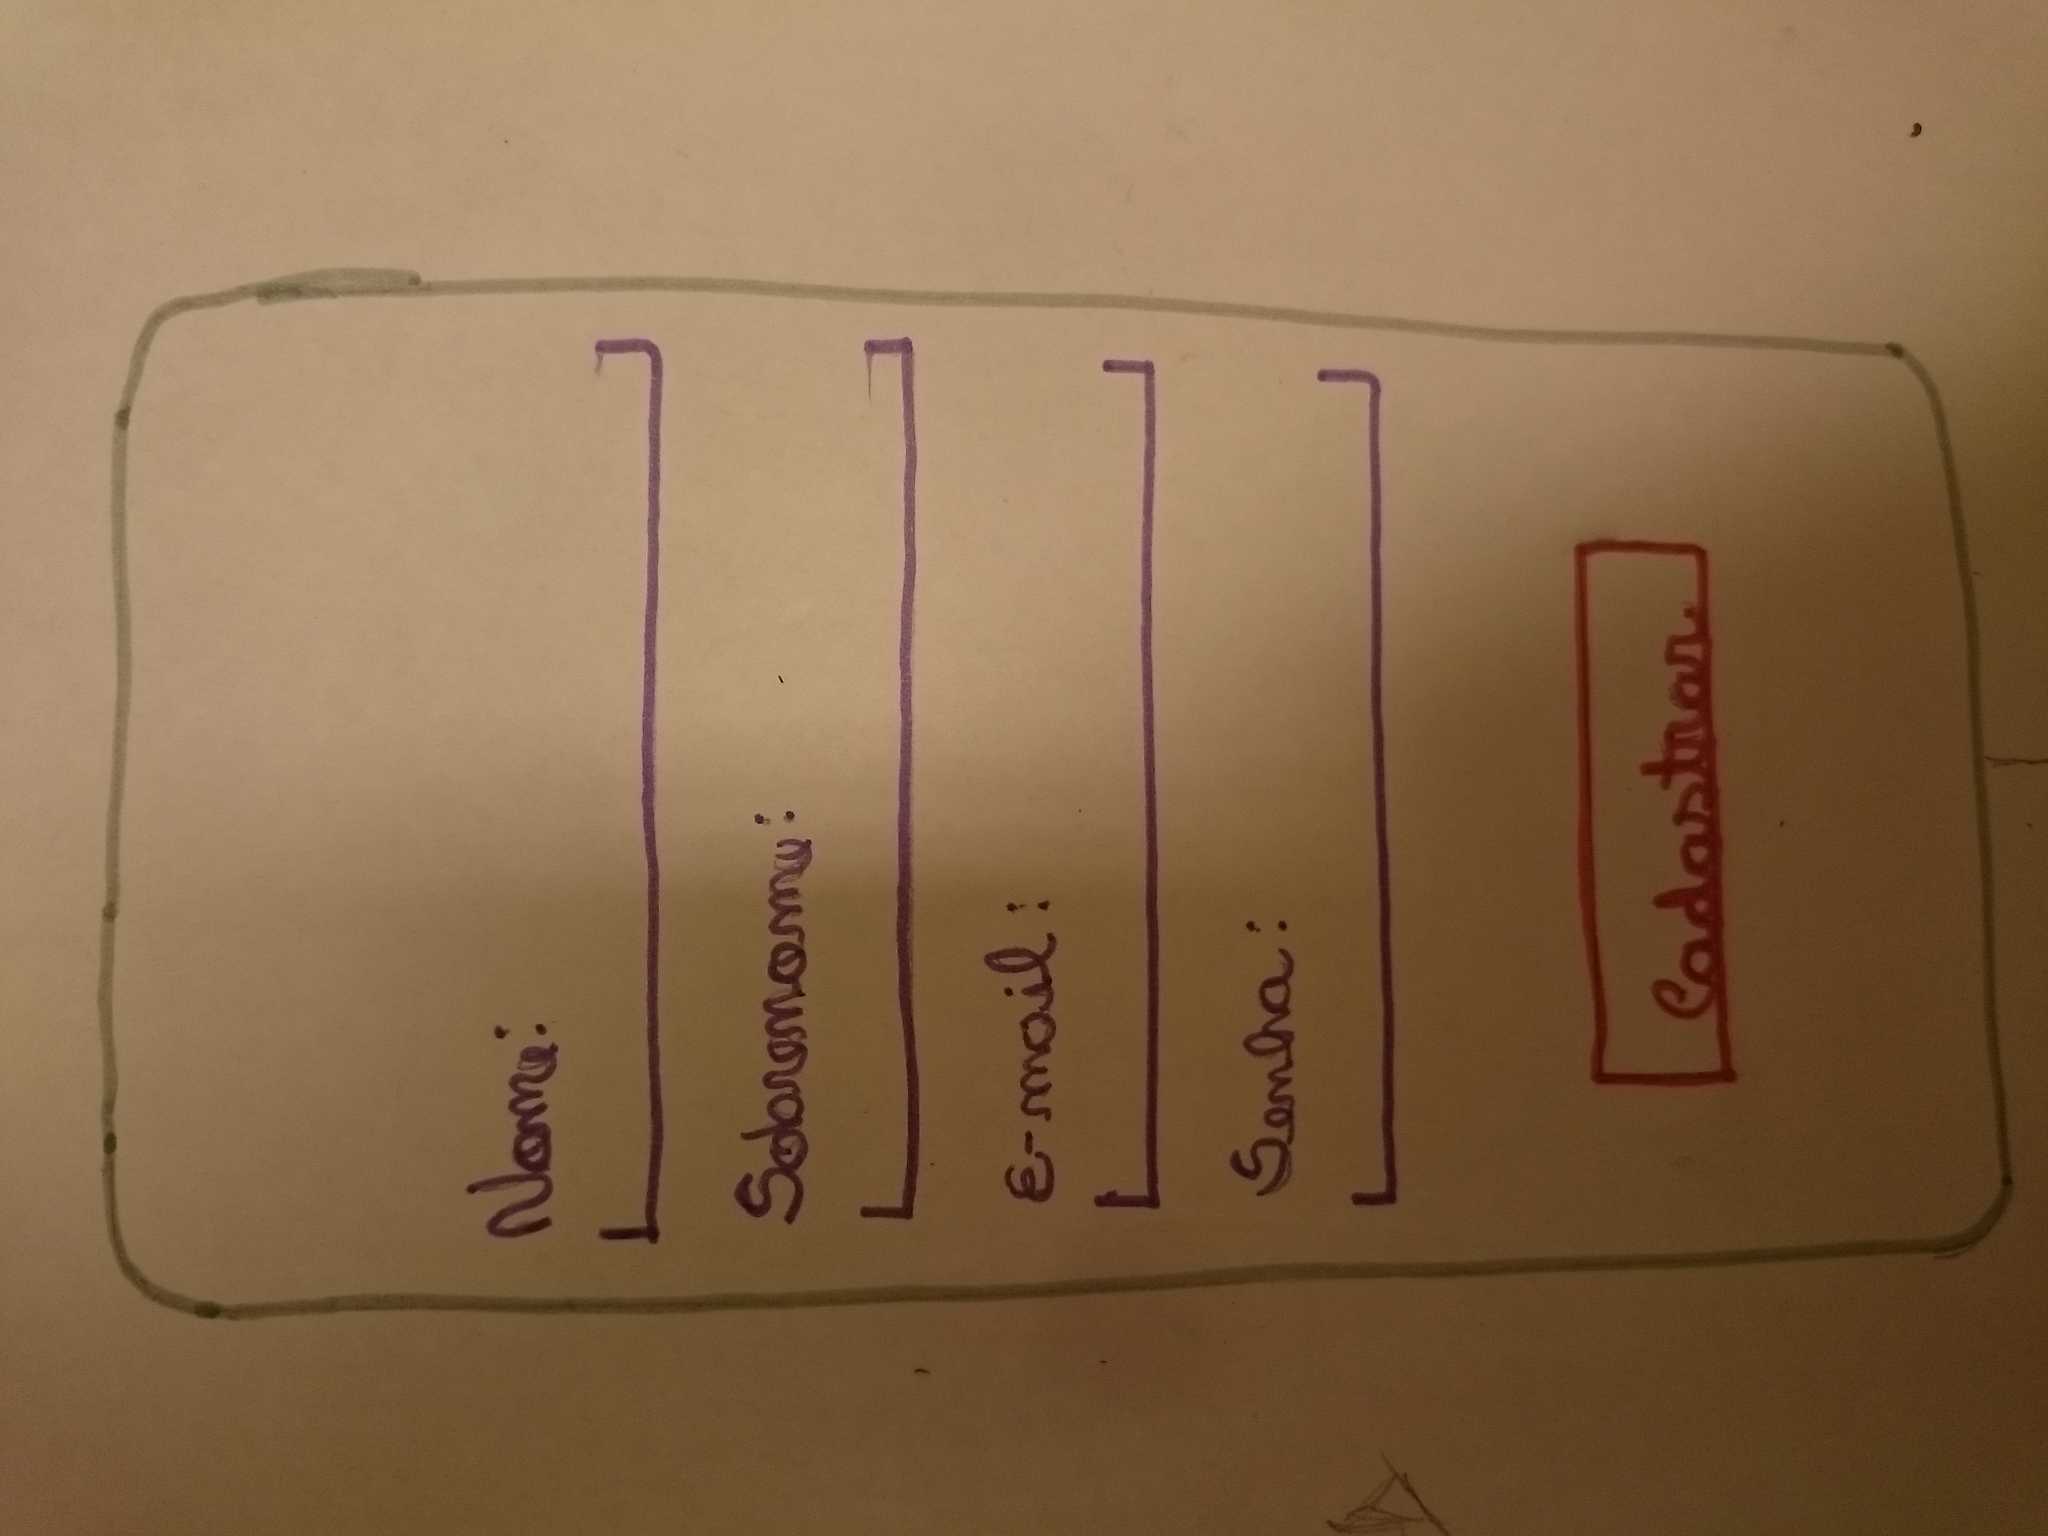 Nome:
Sobrenome:
E-mail:
Senha:
Cadastrar.